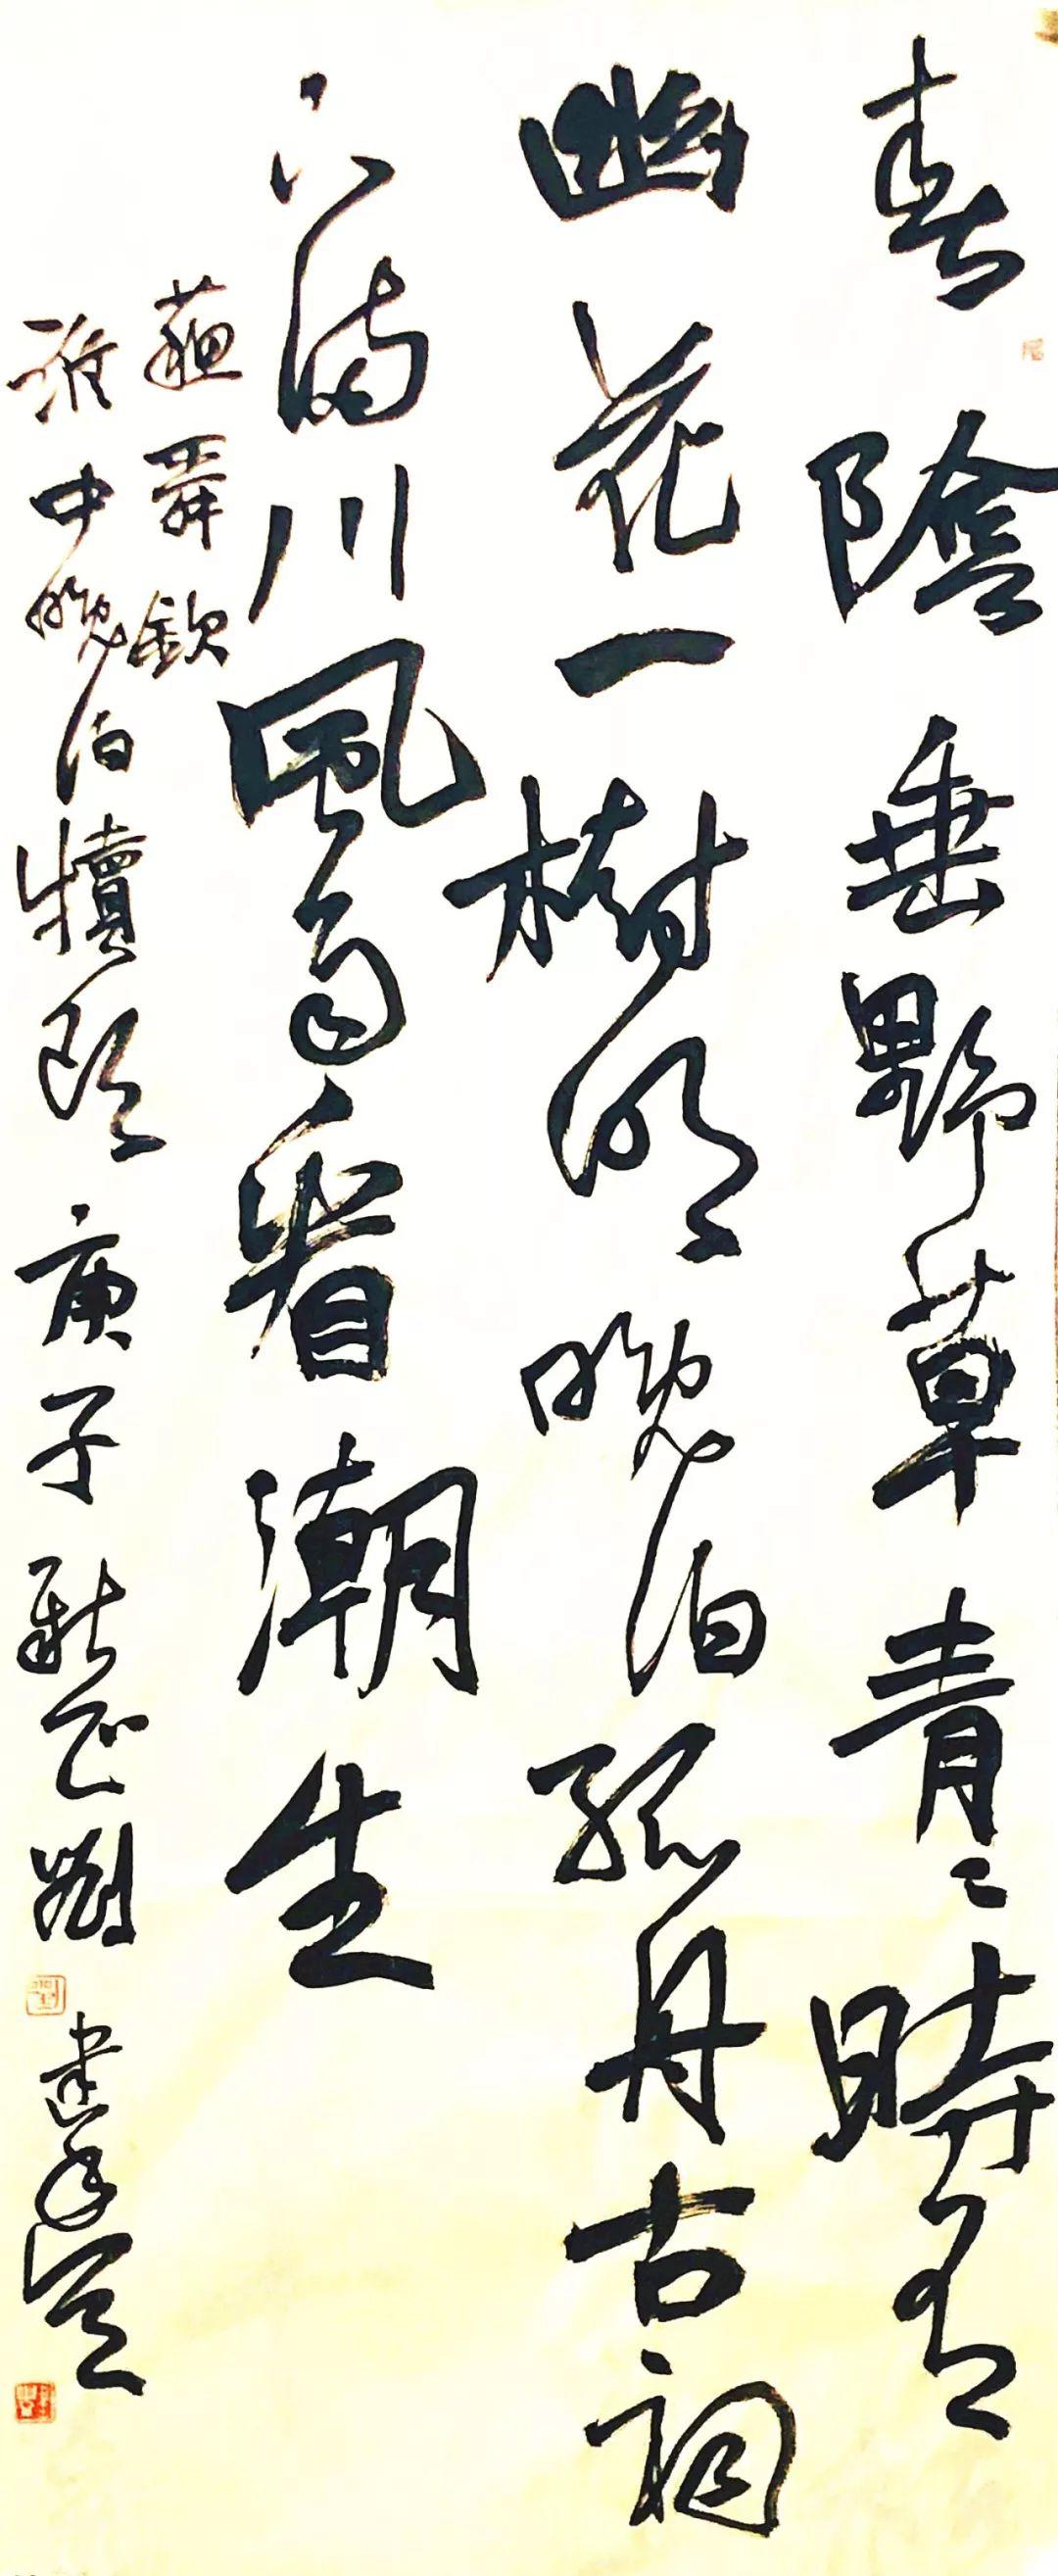 春陰垂野草青〻時有
幽花一樹明晚泊孤舟古祠
下滿川風雨看潮生
蘇舜欽
淮中晚泊犢頭庚子新正劉建